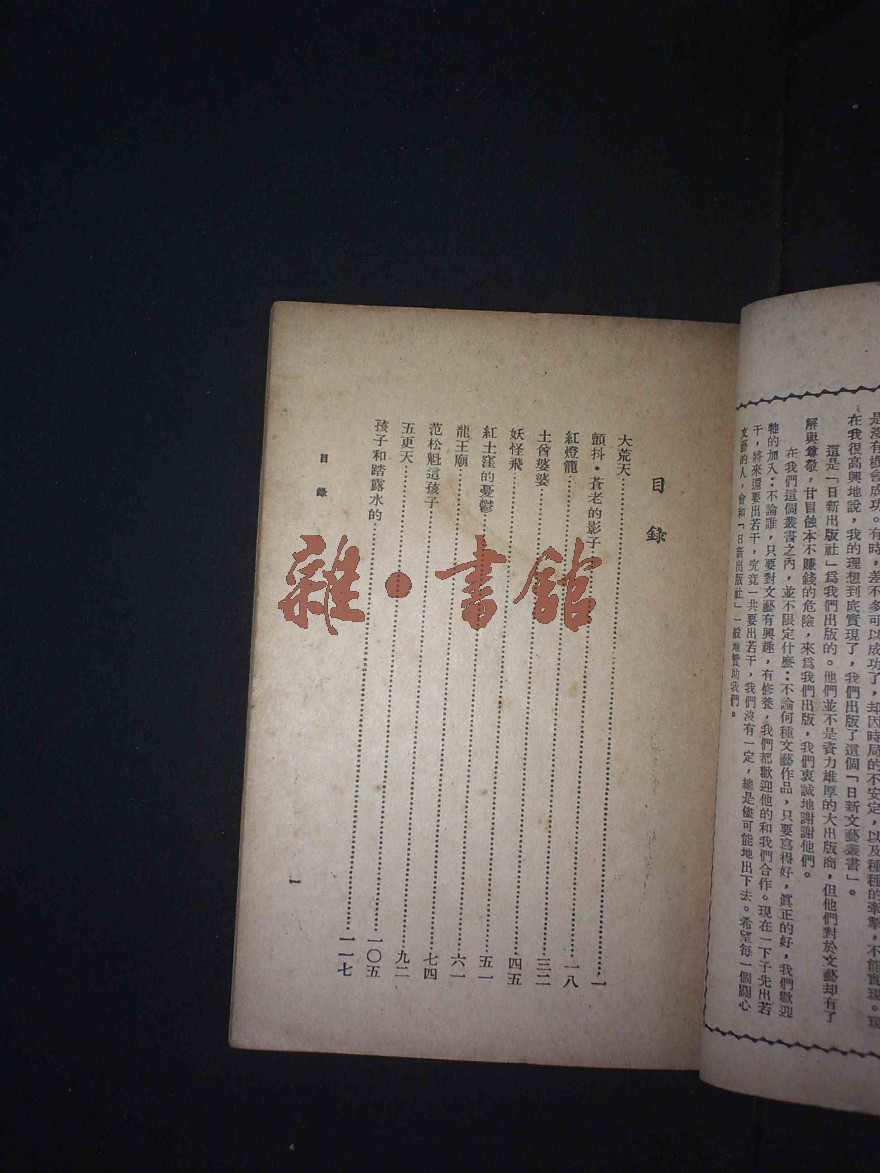 是沒有機會成功。有時，差不多可以成功了，却因時局的不安定，以及種種的牽掣，不能實現。現
在我很高興地說，我的理想到底實現了，我們出版了這個「日新文藝叢書」。
這是「日新出版社」爲我們出版的。他們並不是資力雄厚的大出版商，但他們對於文藝却有了
解與尊敬，甘冒蝕本不賺錢的危險，來爲我們出版，我們衷誠地謝謝他們。
在我們這個叢書之內，並不限定什麽：不論何種文藝作品，只要寫得好，眞正的好，我們歡迎
牠的加入：不論誰，只要對文藝有興趣，有修養，我們都歡迎他的和我們合作。現在一下子先出若
干，將來還要出若干，究竟一共要出若干，我們沒有一定，總是儘可能地出下去。希望每一個關心
文藝的人，會和「日新出版社」一般地贊助我們。
目錄
大荒天……一
顫抖・蒼老的影子……一八
紅燈籠……三二
土酋婆婆……四五
妖怪飛……五一
紅土窪的憂鬱……六一
龍王廟……七四
范松魁這孩子……九二
五更天……一〇五
孩子和踏露水的……一一七
目錄
一
雜・書館